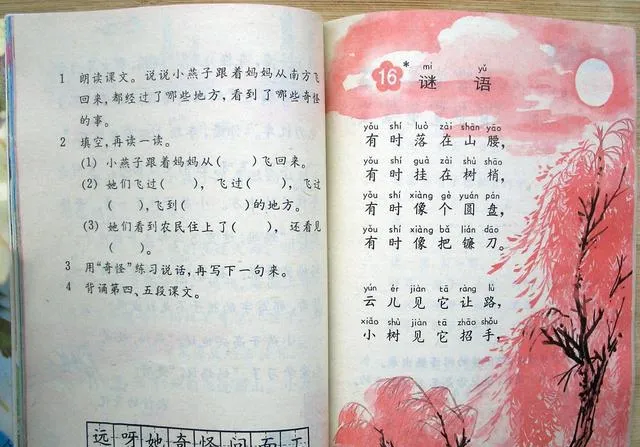 1 朗读课文。说说小燕子跟着妈妈从南方飞
回来,都经过了哪些地方,看到了哪些奇怪
的事。
2 填空,再读一读。
(1) 小燕子跟着妈妈从(    )飞回来。
(2) 她们飞过(    ),飞过(    ),飞过
(    ),飞到(    )的地方。
(3) 她们看到农民住上了(    ),还看见
(    )。
3 用“奇怪”练习说话,再写下一句来。
4 背诵第四、五段课文。
远呀她奇怪问布工
mí yǔ
16* 谜语
yǒu shí luò zài shān yāo
有时落在山腰,
yǒu shí guà zài shù shāo
有时挂在树梢,
yǒu shí xiàng gè yuán pán
有时像个圆盘,
yǒu shí xiàng bǎ lián dāo
有时像把镰刀。
yún ér jiàn tā ràng lù
云儿见它让路,
xiǎo shù jiàn tā zhāo shǒu
小树见它招手,